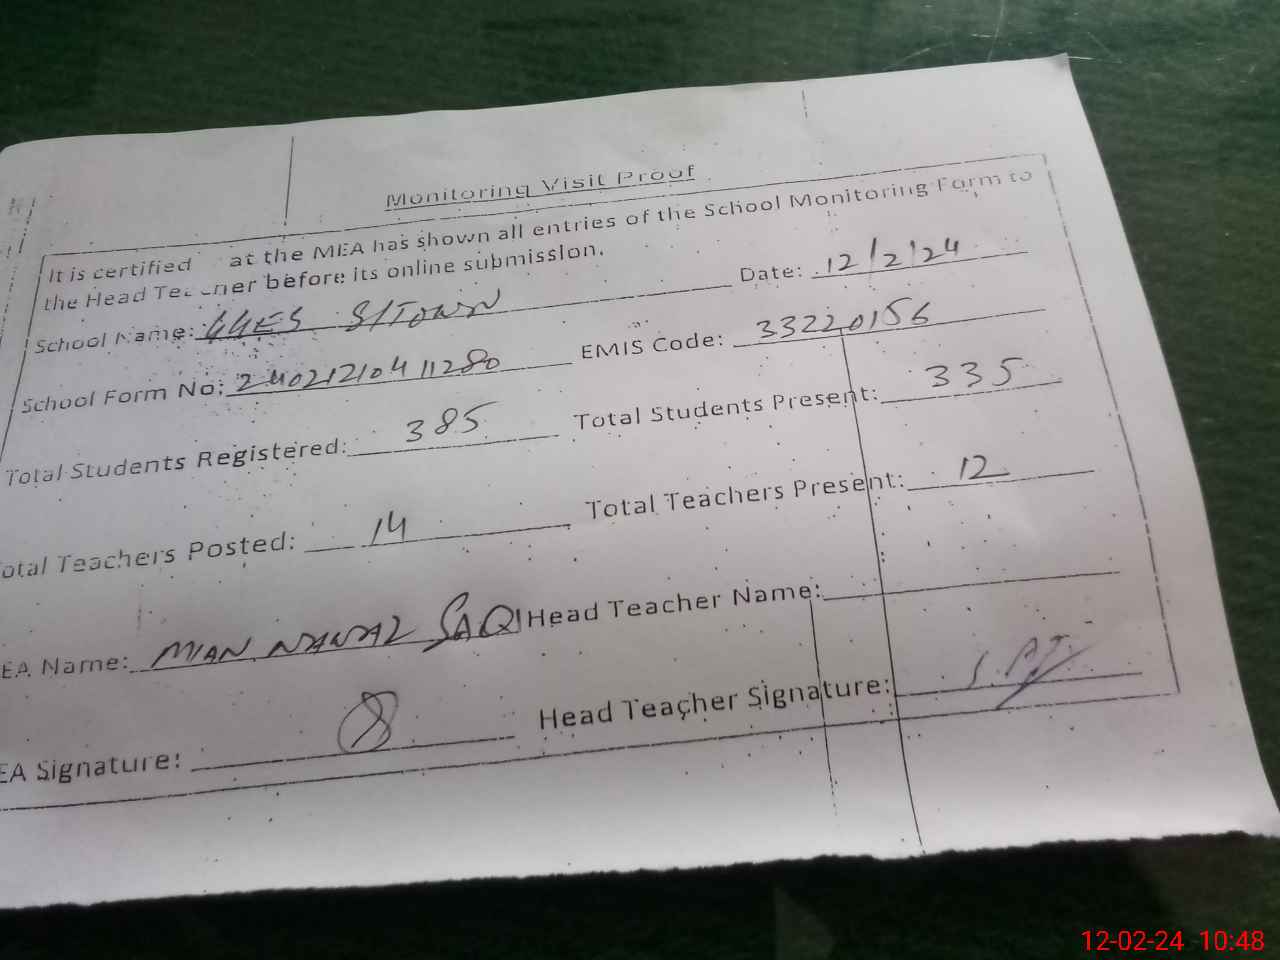 Monitoring Visit Proof
It is certified at the MEA has shown all entries of the School Monitoring Form to
the Head Teacher before its online submission.
School Name: GGES S/TOWN Date: 12/2/24
School Form No: 240212104 11280 EMIS Code: 33220156
Total Students Registered: 385 Total Students Present: 335
otal Teachers Posted: 14 Total Teachers Present: 12
EA Name: MIAN NAWAZ SAQI Head Teacher Name:
EA Signature: Head Teacher Signature:
12-02-24 10:48